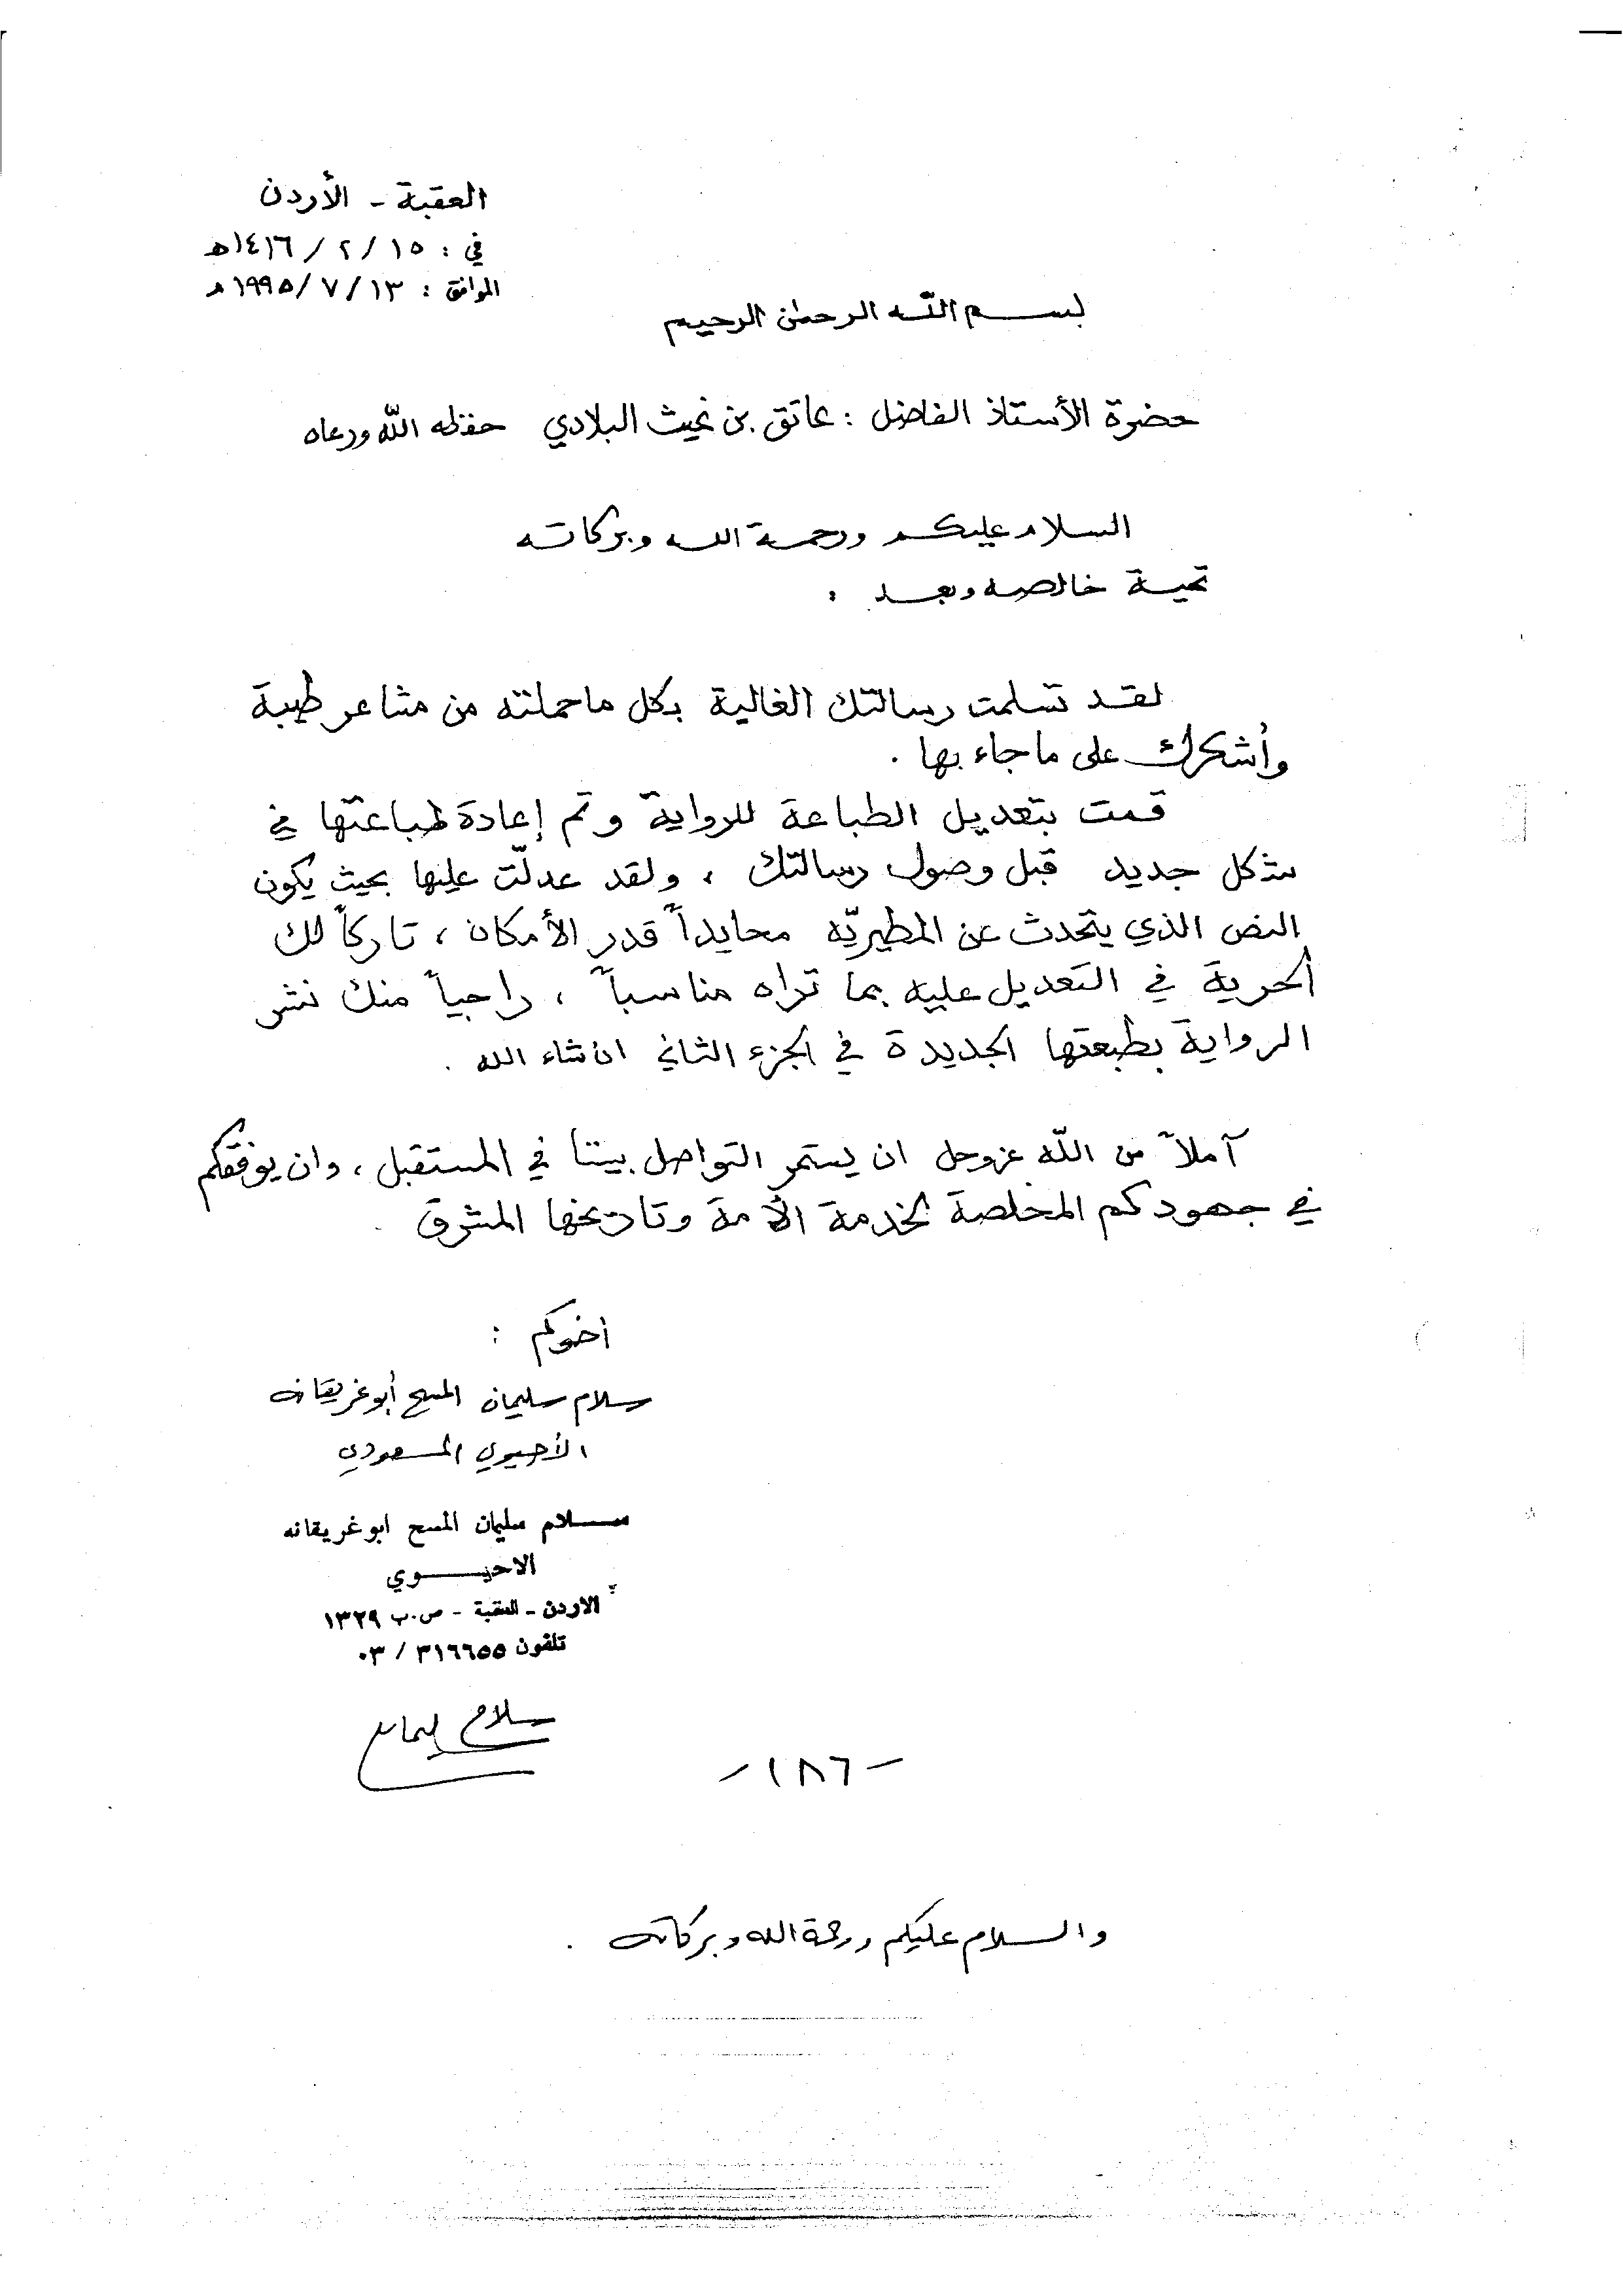 العقبة - الأردن
في : ١٥ / ٢ / ١٤١٦هـ
الموافق : ١٣ / ٧ / ١٩٩٥م
بسم الله الرحمن الرحيم
حضرة الأستاذ الفاضل : عاتق بن غيث البلادي حفظه الله ورعاه
السلام عليكم ورحمة الله وبركاته
تحية خالصه وبعد ،
لقد تسلمت رسالتك الغالية بكل ما حملته من مشاعر طيبة
وأشكرك على ما جاء بها .
قمت بتعديل الطباعة للرواية وتم إعادة طباعتها في
شكل جديد قبل وصول رسالتك ، ولقد عدلّت عليها بحيث يكون
النص الذي يتحدث عن المطيريّه محايداً قدر الأمكان ، تاركاً لك
الحرية في التعديل عليه بما تراه مناسباً ، راجياً منك نشر
الرواية بطبعتها الجديدة في الجزء الثاني ان شاء الله .
آملاً من الله عزوجل ان يستمر التواصل بيننا في المستقبل ، وان يوفقكم
في جهودكم المخلصة لخدمة الأمة وتاريخها المشرق .
أخوكم :
سلام سليمان المسح أبو غريقانه
الأحيوي المسعودي
سلام سليمان المسح ابو غريقانه
الاحيوي
الاردن - العقبة - ص.ب ١٣٢٩
تلفون ٣١٦٦٥٥ / ٠٣
سلام سليمان
- ١٨٦ -
والسلام عليكم ورحمة الله وبركاته .